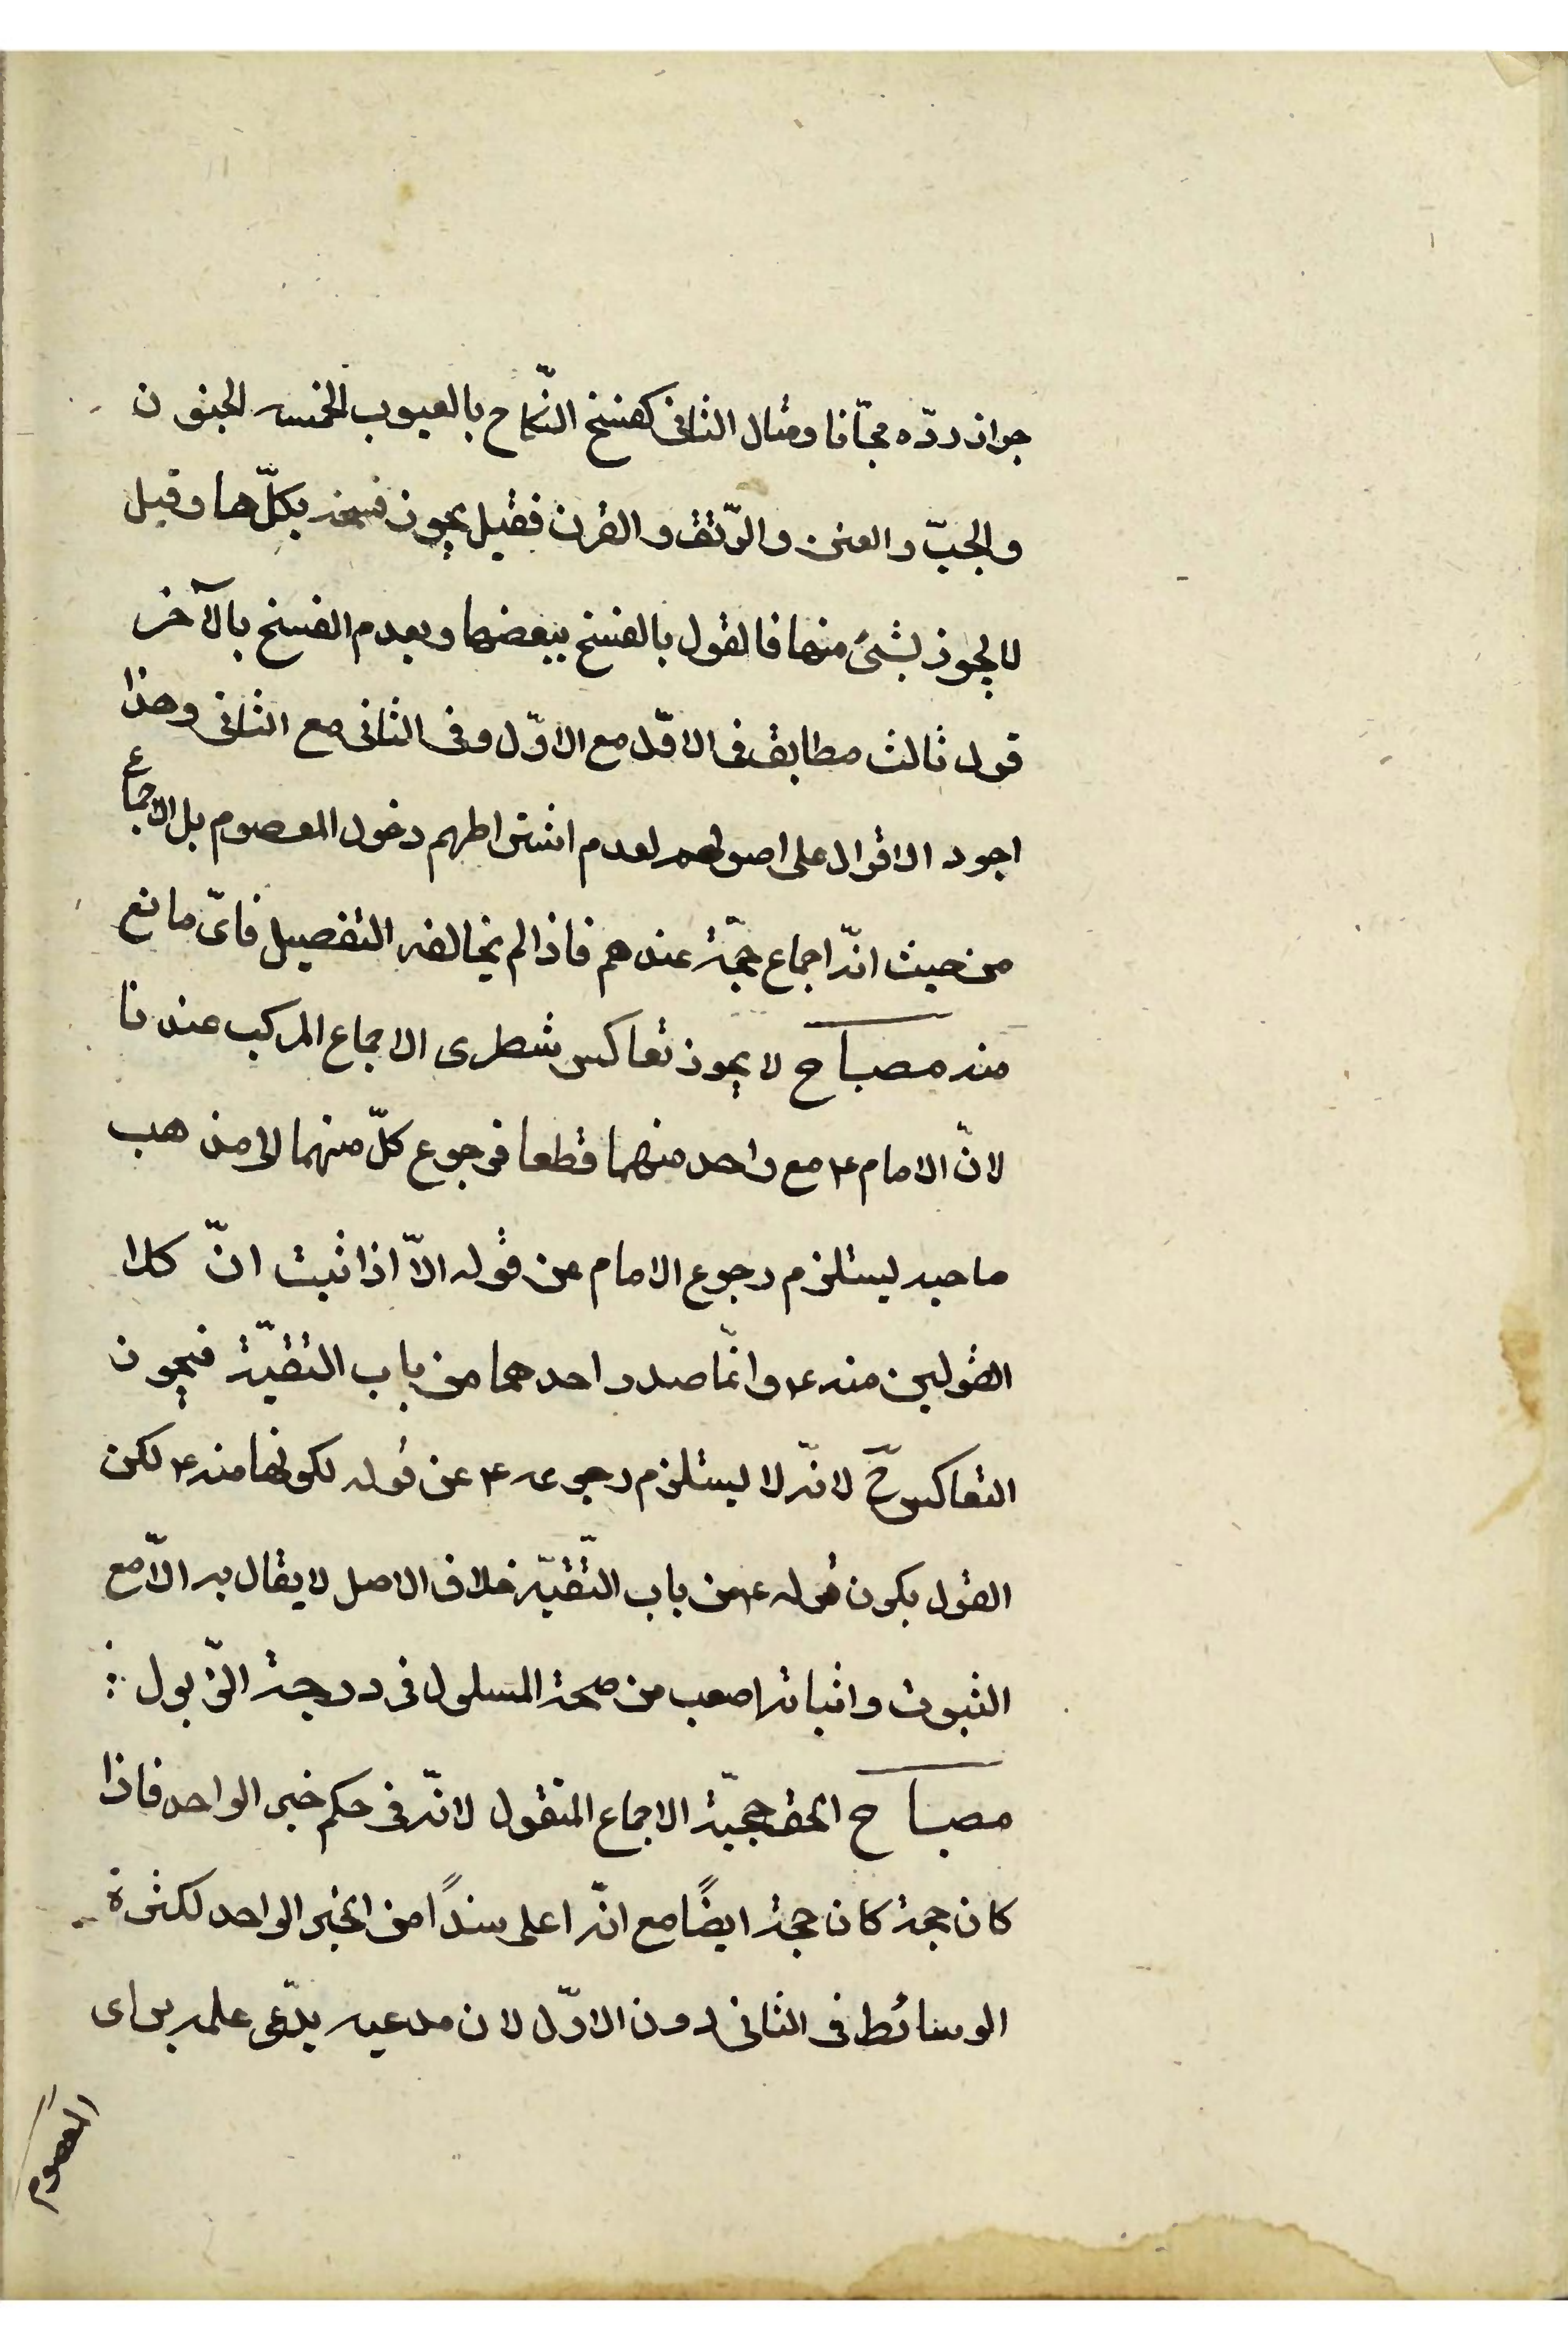 جواز ردّه مجّانا ومثال الثانى كفسخ النّكاح بالعيوب الخمسه الجنون
والجبّ والعنن والرّتق والقرن فقيل يجوز فسخه بكلّها وقيل
لا يجوز بشئ منها فالقول بالفسخ ببعضها وبعدم الفسخ بالآخر
قول ثالث مطابق فى الاوّل مع الاوّل وفى الثانى مع الثانى وهذا
اجود الاقوال على اصولهم لعدم اشتراطهم دخول المعصوم بل الاجماع
من حيث انّه اجماع حجّة عندهم فاذا لم يخالفه التفصيل فاىّ مانع
منه مصباح لا يجوز تعاكس شطرى الاجماع المركب عندنا
لانّ الامام ع مع واحد منهما قطعا فرجوع كلّ منهما الى مذهب
صاحبه يستلزم رجوع الامام عن قوله الاّ اذا ثبت انّ كلا
القولين منه ع وانّما صدر احدهما من باب التقيّة فيجوز
التعاكس ح لانّه لا يستلزم رجوعه ع عن قوله لكونها منه ع لكن
القول بكون قوله ع من باب التّقيّة خلاف الاصل لا يقال به الاّ مع
الثبوت واثباته اصعب من صحة المسلول فى درجة الذّبول
مصباح الحق حجيّة الاجماع المنقول لانّه فى حكم خبر الواحد فاذا
كان حجة كان حجة ايضًا مع انّه اعلى سندًا من الخبر الواحد لكثرة
الوسائط فى الثانى دون الاوّل لان مدعيه يدّعى علمه براى
المعصوم